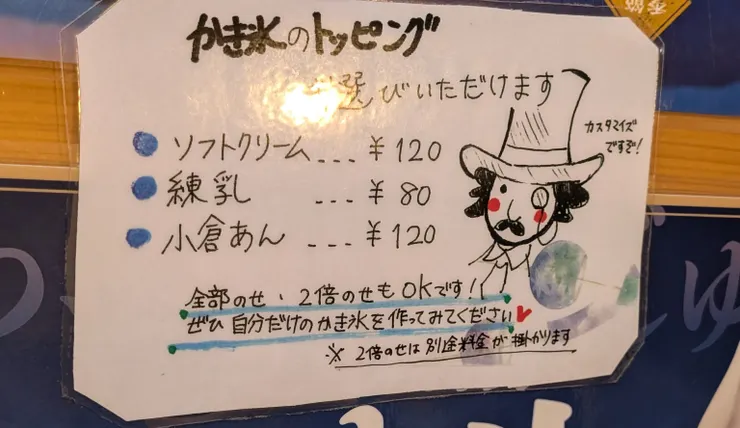 かき氷のトッピング
選びいただけます
ソフトクリーム... ¥120
練乳 ... ¥80
小倉あん ... ¥120
カスタマイズ
ですぞ!
全部のせ、2倍のせもOKです!
ぜひ自分だけのかき氷を作ってみてください
※2倍のせは別途料金が掛かります